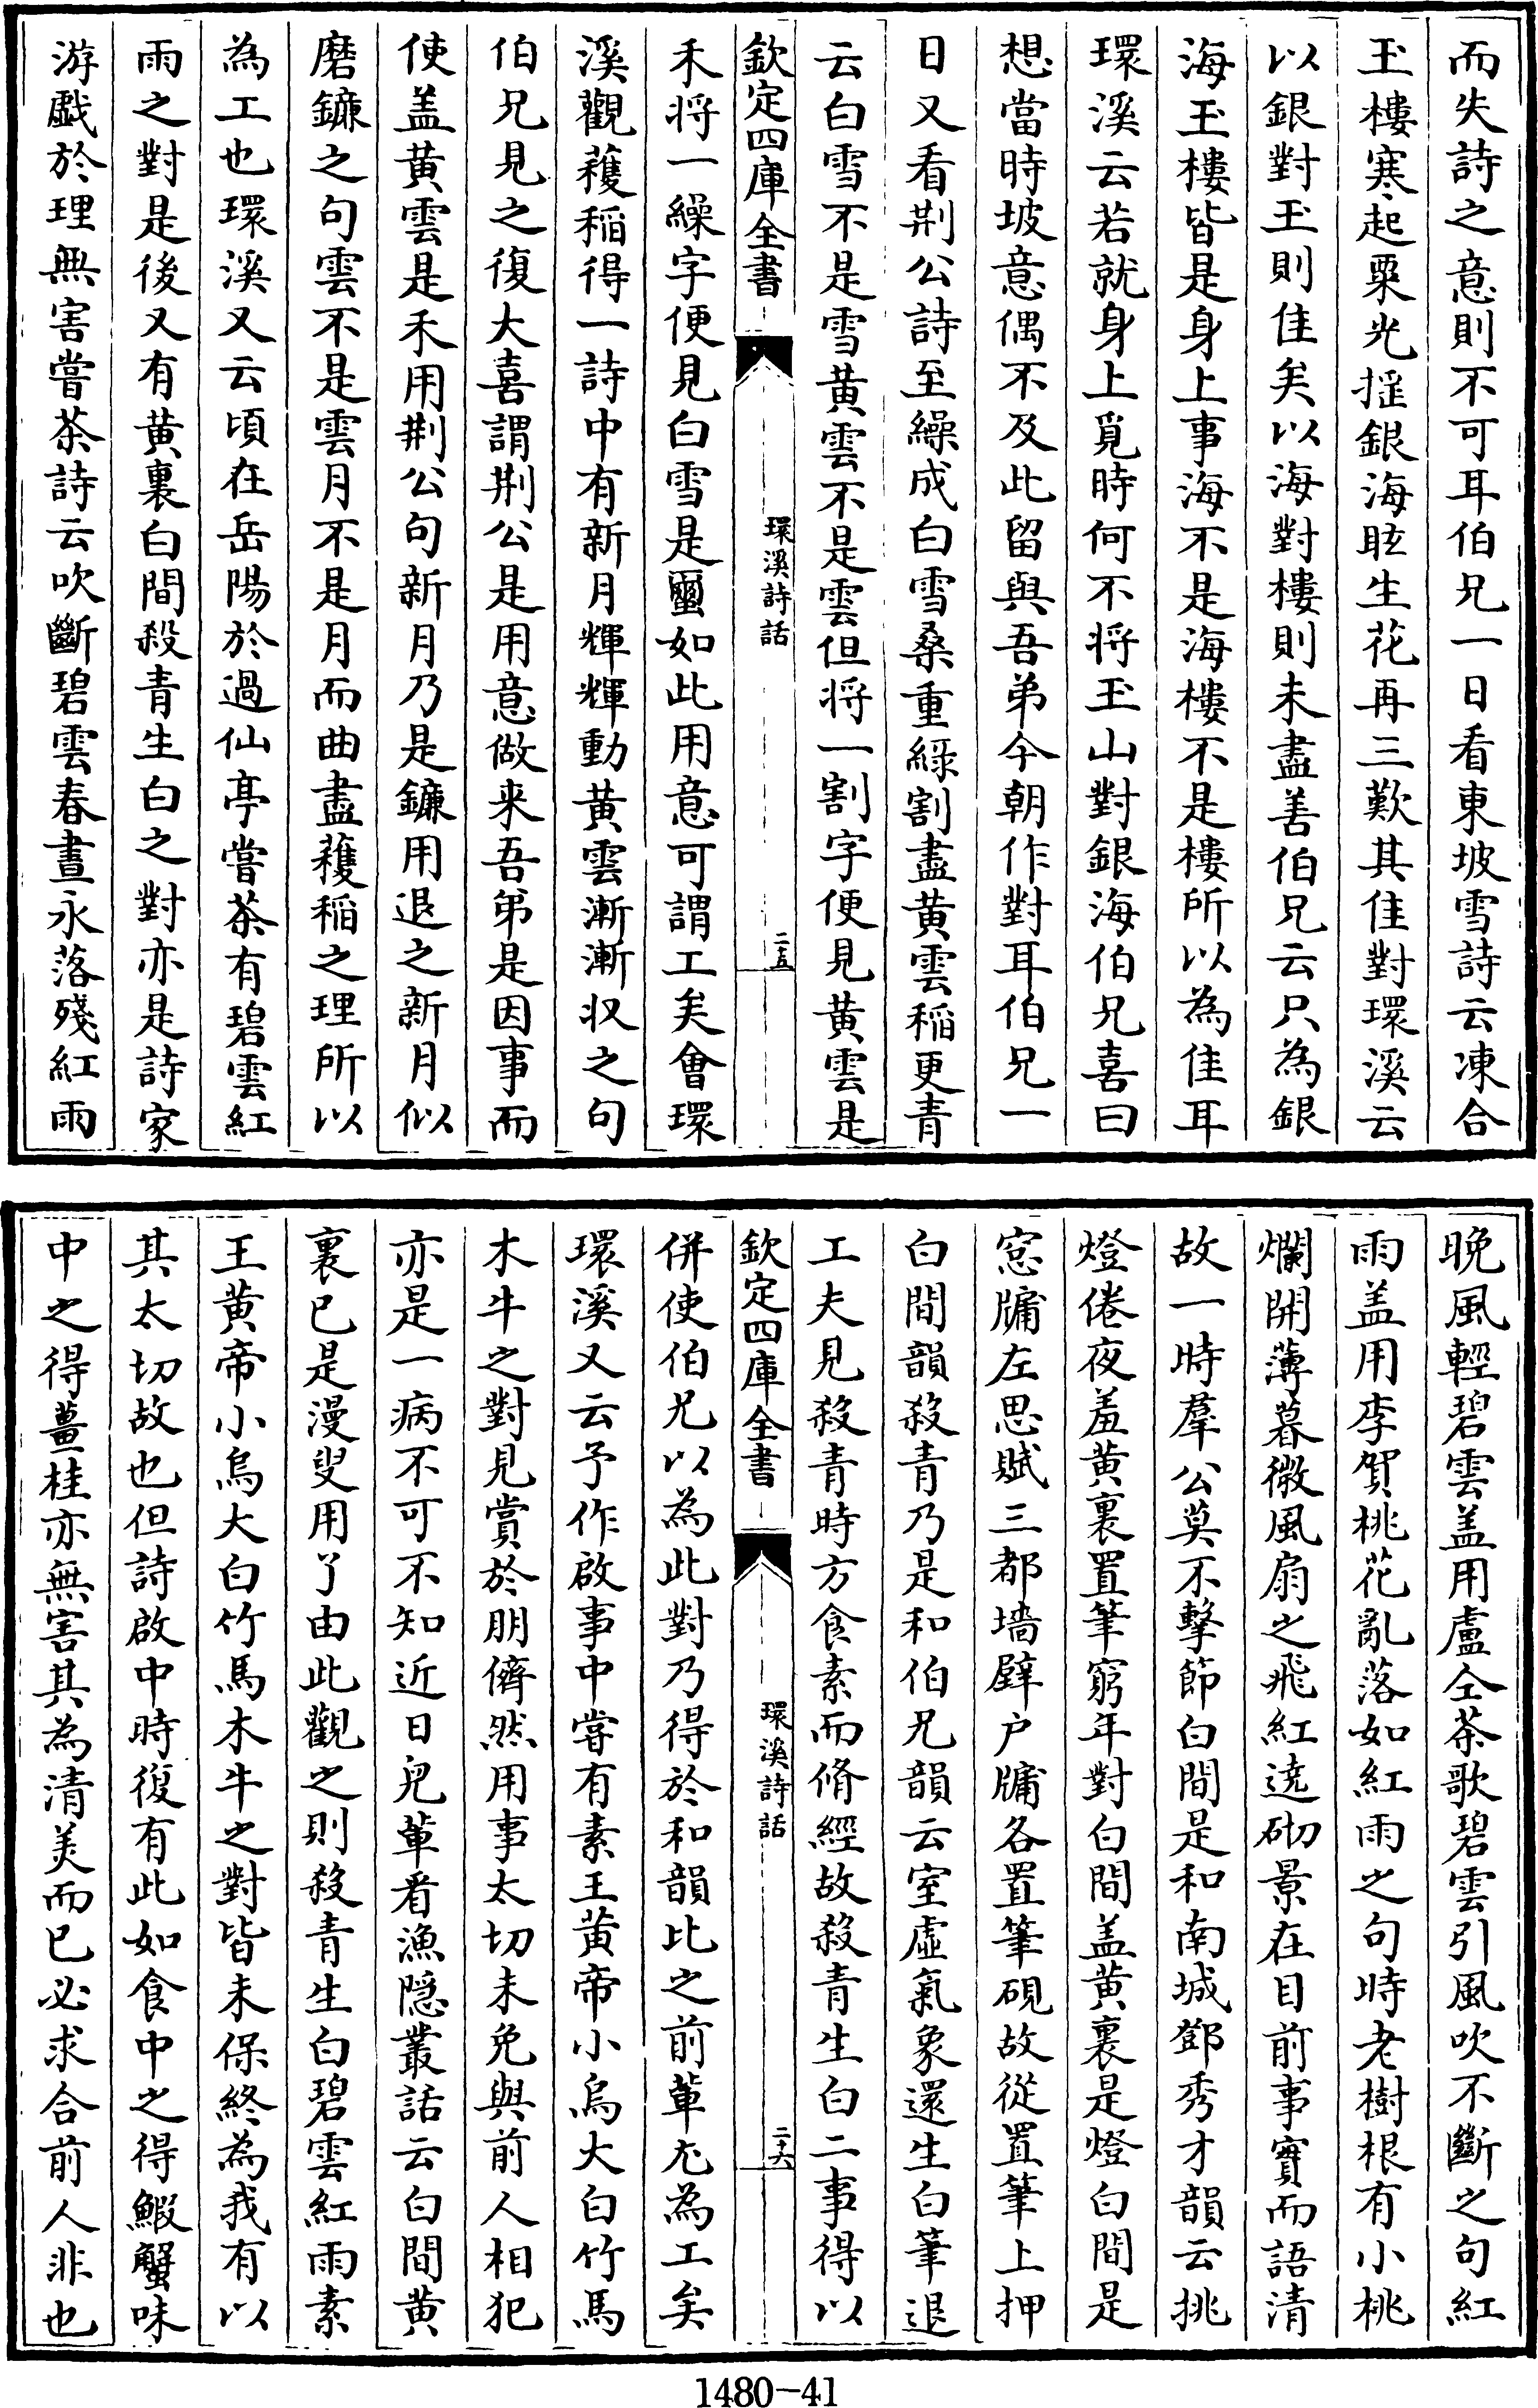 而失詩之意則不可耳伯兄一日看東坡雪詩云凍合
玉樓寒起粟光摇銀海眩生花再三歎其佳對環溪云
以銀對玉則佳矣以海對樓則未盡善伯兄云只為銀
海玉樓皆是身上事海不是海樓不是樓所以為佳耳
環溪云若就身上覓時何不将玉山對銀海伯兄喜曰
想當時坡意偶不及此留與吾弟今朝作對耳伯兄一
日又看荆公詩至繰成白雪桑重緑割盡黄雲稻更青
云白雪不是雪黄雲不是雲但将一割字便見黄雲是
欽定四庫全書
環溪詩話
二五
禾将一繰字便見白雪是蠒如此用意可謂工矣會環
溪觀穫稻得一詩中有新月輝輝動黄雲漸漸収之句
伯兄見之復大喜謂荆公是用意做来吾弟是因事而
使盖黄雲是禾用荆公句新月乃是鐮用退之新月似
磨鐮之句雲不是雲月不是月而曲盡穫稻之理所以
為工也環溪又云頃在岳陽於過仙亭嘗茶有碧雲紅
雨之對是後又有黄裏白間殺青生白之對亦是詩家
游戲於理無害嘗茶詩云吹斷碧雲春晝永落殘紅雨
晚風輕碧雲盖用盧仝茶歌碧雲引風吹不斷之句紅
雨盖用李賀桃花亂落如紅雨之句時老樹根有小桃
爛開薄暮微風扇之飛紅遶砌景在目前事實而語清
故一時羣公莫不擊節白間是和南城鄧秀才韻云挑
燈倦夜羞黄裏置筆窮年對白間盖黄裏是燈白間是
窓牗左思賦三都墻壁户牗各置筆硯故從置筆上押
白間韻殺青乃是和伯兄韻云室虛氣象還生白筆退
工夫見殺青時方食素而脩經故殺青生白二事得以
欽定四庫全書
環溪詩話
二十六
併使伯兄以為此對乃得於和韻比之前輩尤為工矣
環溪又云予作啟事中嘗有素王黄帝小烏大白竹馬
木牛之對見賞於朋儕然用事太切未免與前人相犯
亦是一病不可不知近日兒輩看漁隐叢話云白間黄
裏已是漫叟用了由此觀之則殺青生白碧雲紅雨素
王黄帝小烏大白竹馬木牛之對皆未保終為我有以
其太切故也但詩啟中時復有此如食中之得鰕蟹味
中之得薑桂亦無害其為清美而已必求合前人非也
1480-41